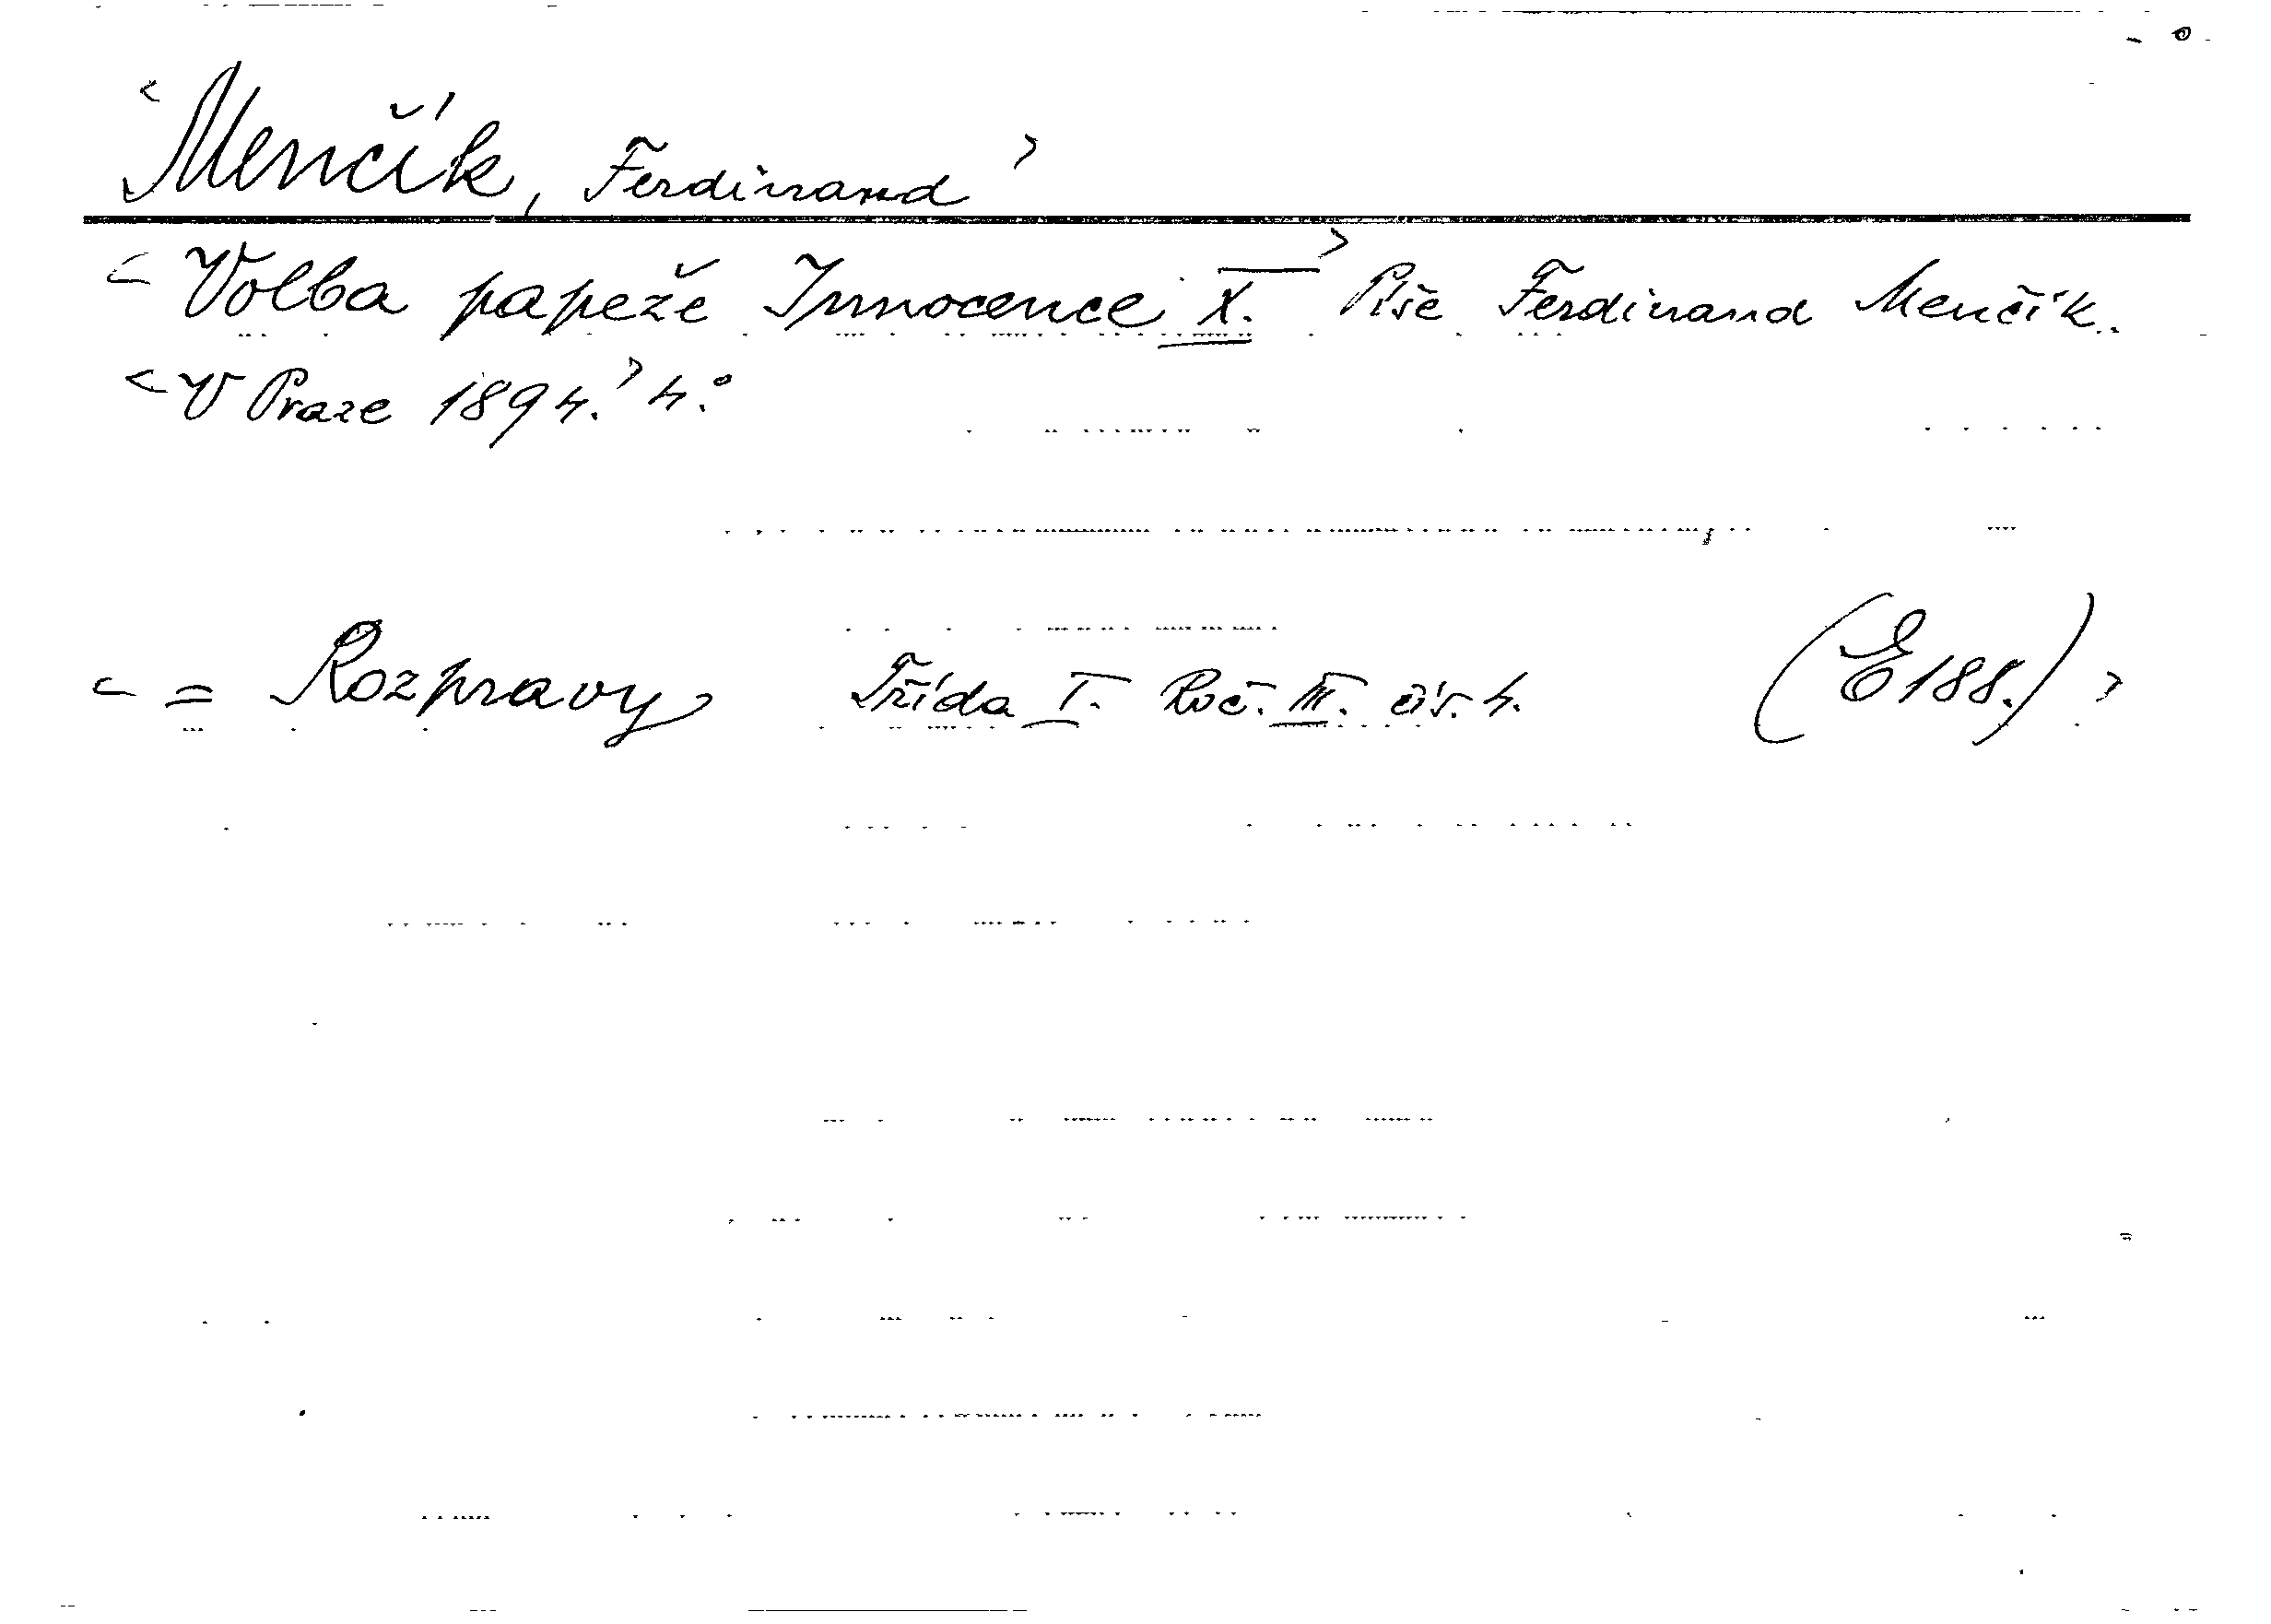 <Menčík, Ferdinand>
<Volba papeže Innocence X.> Píše Ferdinand Menčík.
<V Praze 1894.> 4.°
<= Rozpravy Třída I. Roč. III. čís. 4. (E 188.)>